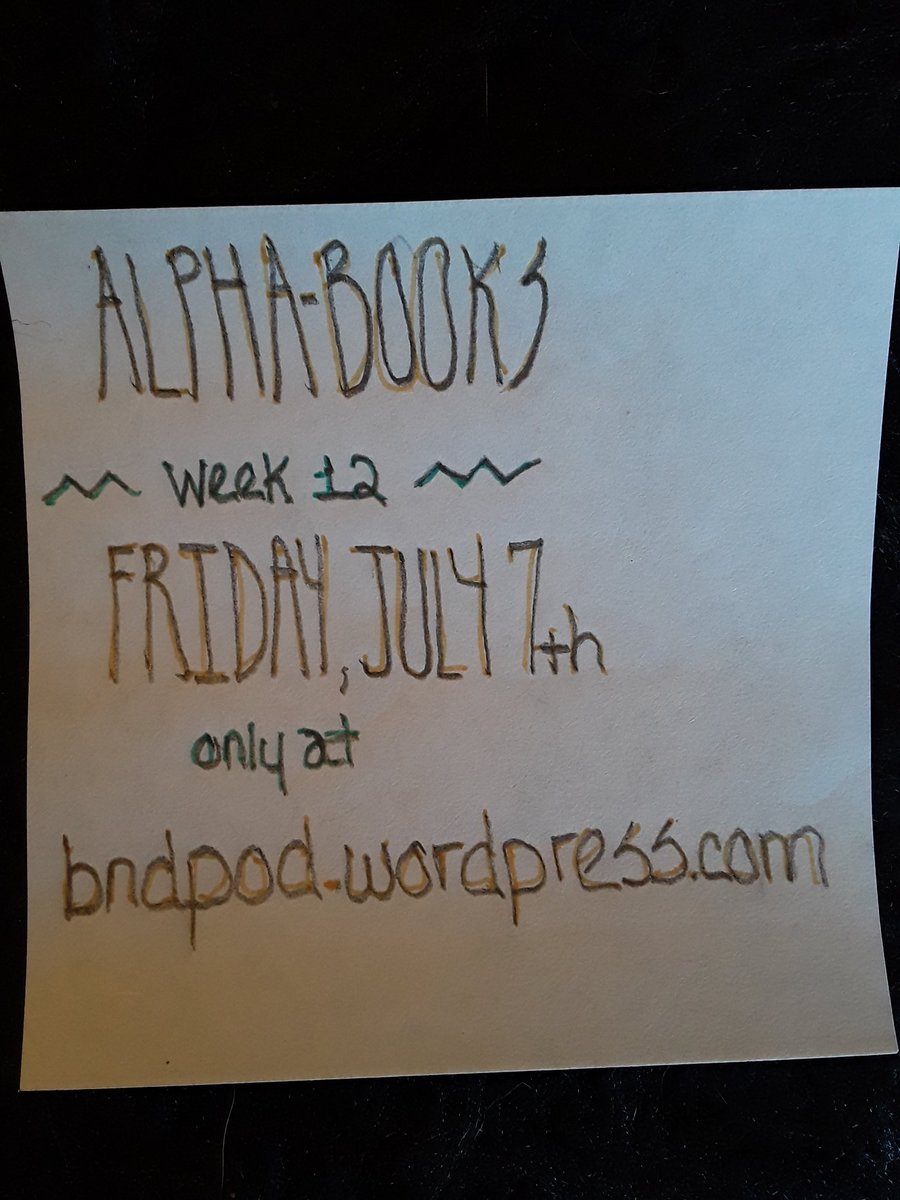 ALPHA-BOOKS
week 12
FRIDAY, JULY 7th
only at
bndpod.wordpress.com